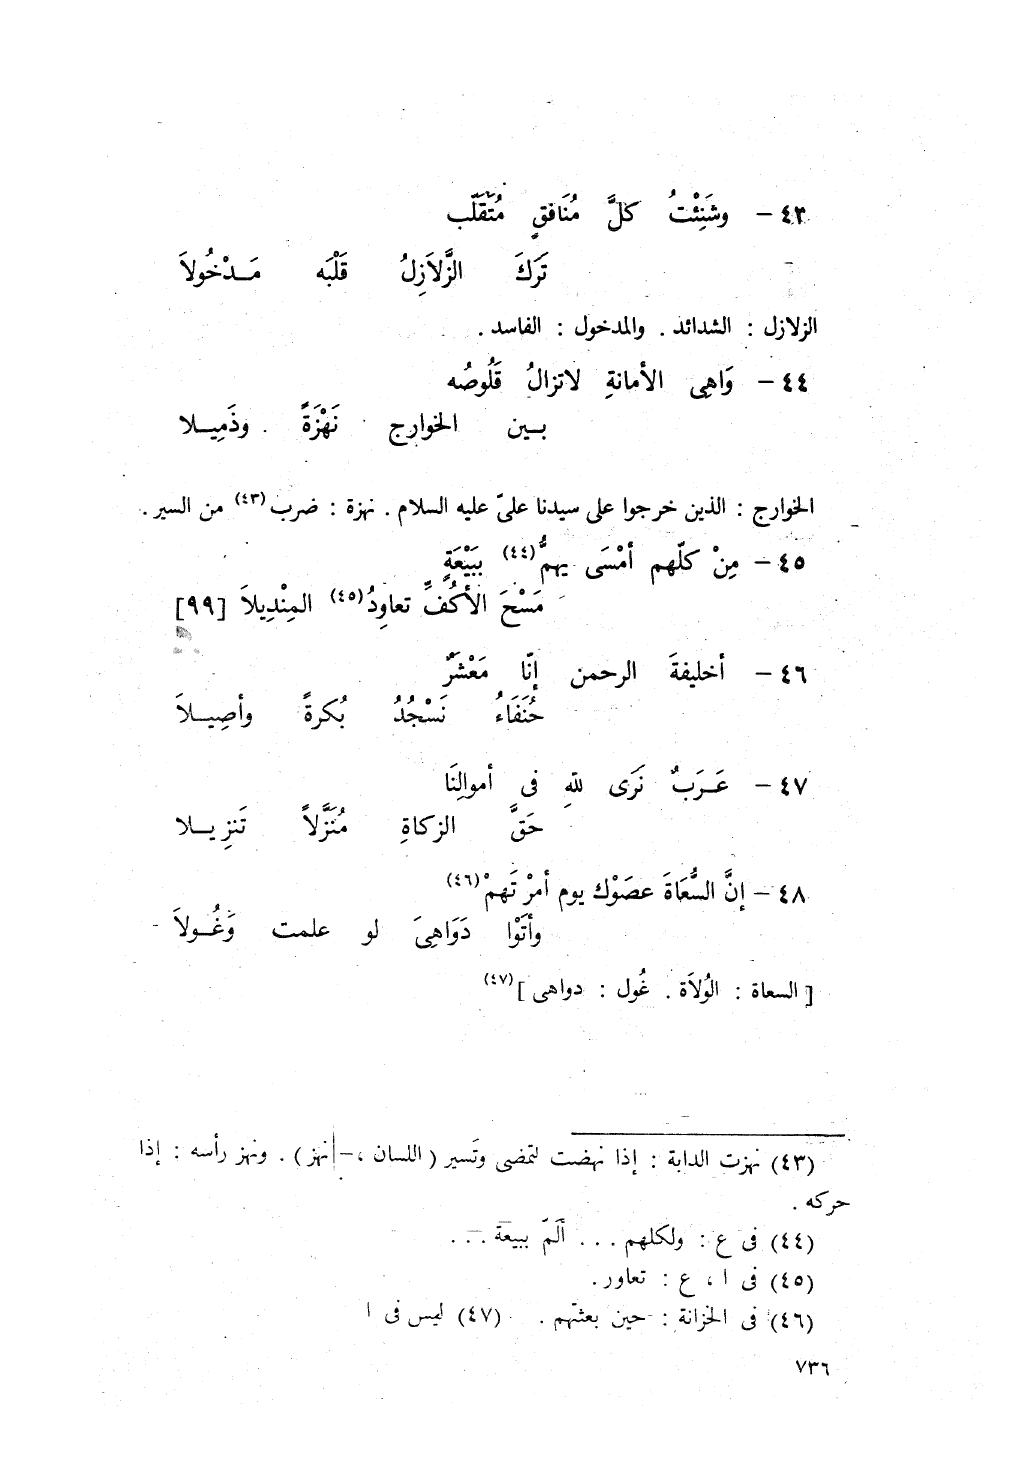 ٤٣ – وشَنِئْتُ كلَّ مُنَافقٍ مُتَقَلّب
تَرَكَ الزَّلاَزِلُ قَلْبَه مَـدْخُولاَ
الزلازل : الشدائد . والمدخول : الفاسد .
٤٤ – وَاهِى الأمانةِ لاتزالُ قَلُوصُه
بـين الخوارج نَهْزَةً وذَمِيـلا
الخوارج : الذين خرجوا على سيدنا علىّ عليه السلام . نهزة : ضرب(٤٣) من السير .
٤٥ – مِنْ كلّهم أمْسَى يهمُّ(٤٤) ببَيْعَةٍ
مَسْحَ الأكُفِّ تعاوِدُ(٤٥) المِنْدِيلاَ [٩٩]
٤٦ – أخليفةَ الرحمن إنّا مَعْشَرٌ
حُنَفَاءُ نَسْجُدُ بُكرةً وأصِيـلاَ
٤٧ – عَـرَبٌ نَرَى للهِ فى أموالِنَا
حَقَّ الزكاةِ مُنَزَّلاً تَنزِيـلا
٤٨ – إنَّ السُّعَاةَ عصَوْك يوم أمرْتَهمْ(٤٦)
وأتَوْا دَوَاهِىَ لو علمت وَغُـولاَ
[ السعاة : الوُلاَة . غُول : دواهى ](٤٧)
(٤٣) نهزت الدابة : إذا نهضت لتمضى وتَسير ( اللسان ، – نهز ) . ونهز رأسه : إذا
حركه .
(٤٤) فى ع : ولكلهم . . . ألَمّ ببيعة . . .
(٤٥) فى ا ، ع : تعاور .
(٤٦) فى الخزانة : حين بعثتهم . (٤٧) ليس فى ا
٧٣٦